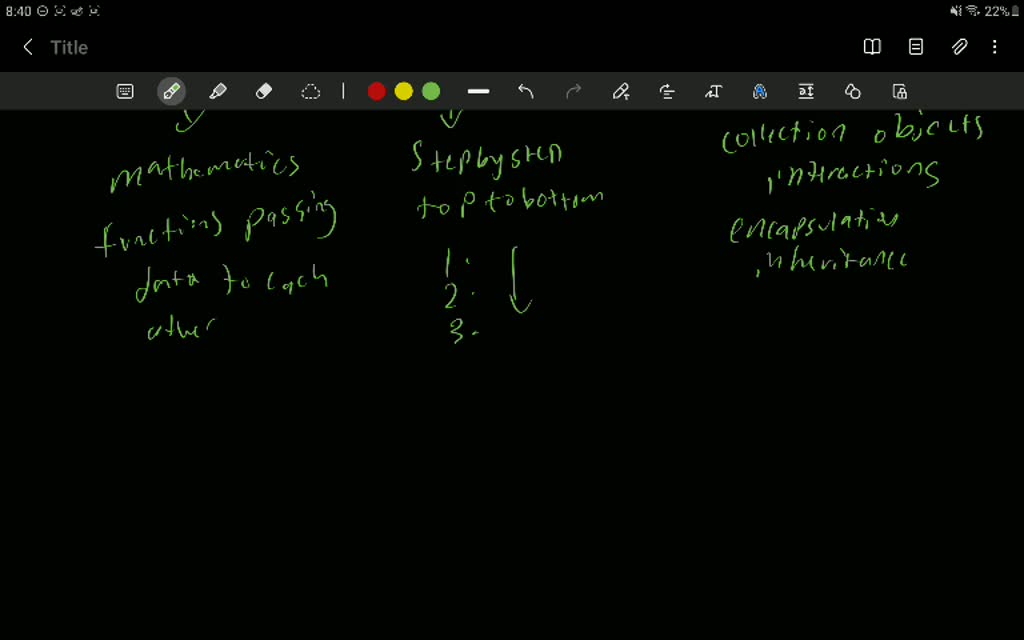 8:40
22%
Title
mathematics
functions passing
data to each
other
Step by step
top to bottom
1.
2.
3.
collection objects
interactions
encapsulation
inheritance